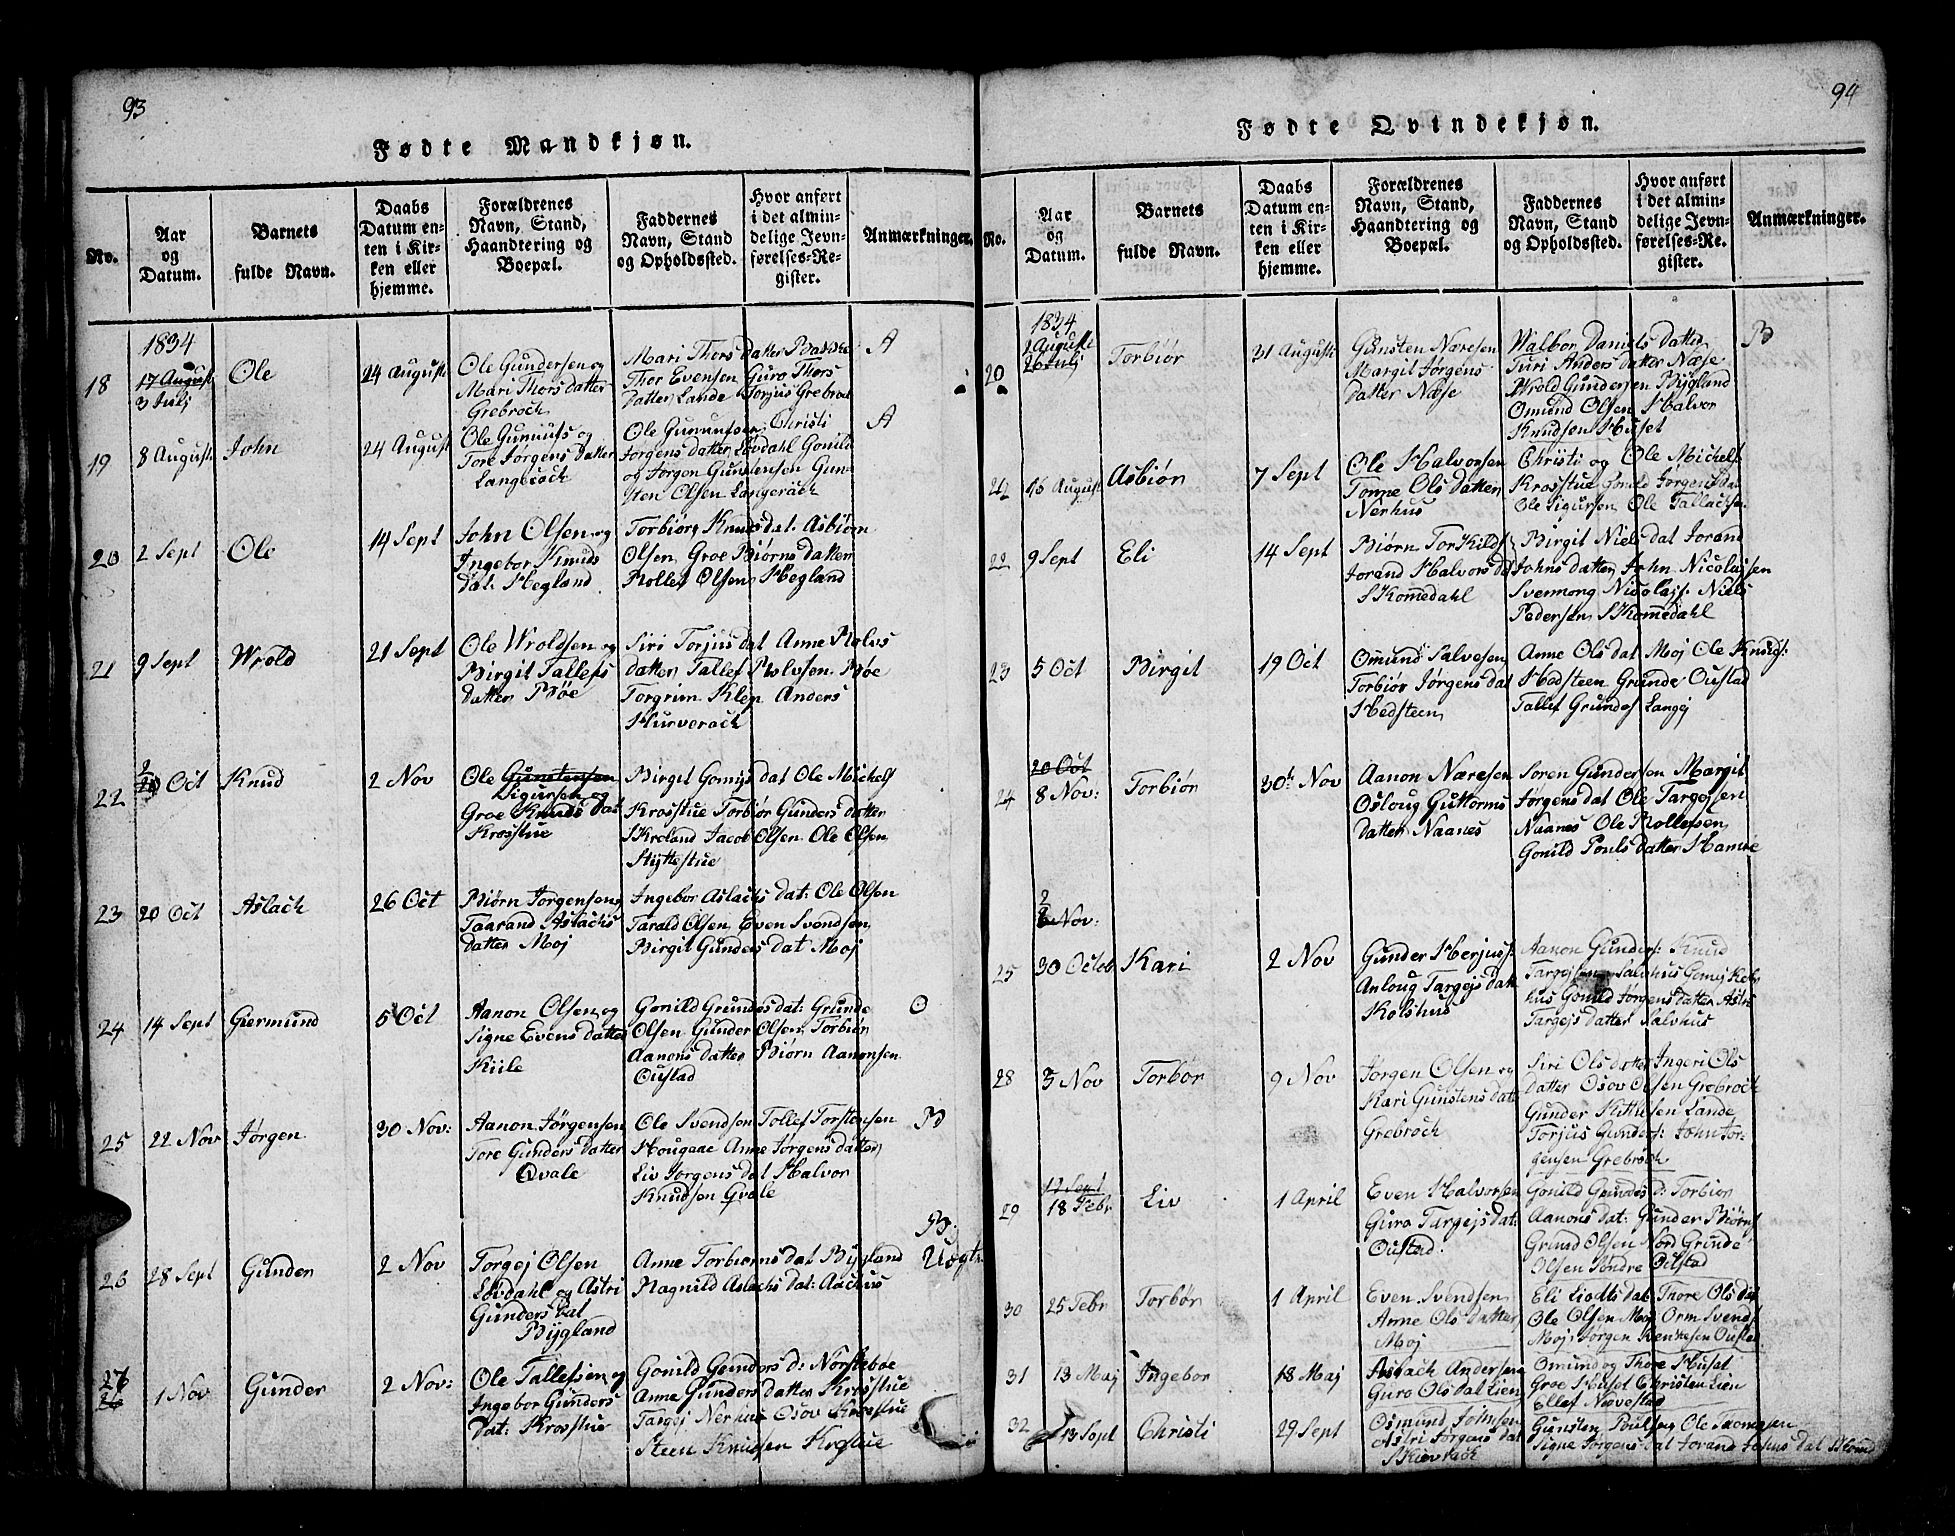 93
Fødte Mandkjøn.
No.
Aar og Datum.
Barnets fulde Navn.
Daabs Datum enten i Kirken eller hjemme.
Forældrenes Navn, Stand, Haandtering og Boepæl.
Faddernes Navn, Stand og Opholdssted.
Hvor anført i det almindelige Jevnførelses-Register.
Anmærkninger.
1834
18
17 August
3 Julj
Ole
24 August
Ole Gundersen og
Mari Thors datter
Grebrock
Mari Thors datter Bakke
Thor Evensen Guro Thors
datter Lande Torjus Grebrock
A
19
8 August
John
24 August
Ole Gunnufs og
Tore Jørgens datter
Langerack
Ole Gunnufsen Christi
Jørgens datter Lovdahl Gonild
og Jørgen Gundersen Gun-
sten Olsen Langerack
A
20
2 Sept
Ole
14 Sept
John Olsen og
Ingebor Knuds
dat. Hegland
Torbiør Knuds dat. Asbiørn
Olsen Groe Biørns datter
Rollef Olsen Hegland
21
9 Sept
Wrold
21 Sept
Ole Wroldsen og
Birgit Tallefs
datter Bøe
Siri Torjus dat Anne Rolvs
datter Tallef Rolvsen Bøe
Torgrim Klep Anders
Hurverack
22
2
20 Oct
Knud
2 Nov
Ole Gunstensen
Sigursen og
Groe Knuds dat
Krosstue
Birgit Gomijs dat Ole Michels
Krosstue Torbiør Gunders datter
Skreland Jacob Olsen Ole Olsen
Hyttestue
23
20 Oct
Aslack
26 Oct
Biørn Jørgensen
Taarand Aslacks
datter Moj
Ingebor Aslachs dat: Ole Olsen
Tarald Olsen Even Svendsen
Birgit Gunders dat Moj
24
14 Sept
Giermund
5 Oct
Aanon Olsen og
Signe Evens datter
Kiile
Gonild Grundes dat: Grunde
Olsen Gunder Olsen Torbiør
Aanons datter Biørn Aanonsen
Oustad
O
25
22 Nov
Jørgen
30 Nov:
Aanon Jørgensen
Tore Gunders datter
Qvale
Ole Svendsen Tollef Torstensen
Hougaae Anne Jørgens datter
Liv Jørgens dat Halvor
Knudsen Qvale
B
26
28 Sept
Gunder
2 Nov
Torgej Olsen
Lovdahl og Astri
Gunders dat
Bygland
Anne Torbiørns dat Bygland
Ragnild Aslachs dat: Aachus
B.
Uægte
27
26
1 Nov
Gunder
2 Nov:
Ole Tallefsen og
Ingebor Gunders
dat: Krosstue
Gonild Gunders d: Norstebøe
Anne Gunders datter Krosstue
Targej Nerhus Osov Krosstue
Steen Knudsen Krostue
94
Fødte Qvindekjøn.
No.
Aar og Datum.
Barnets fulde Navn.
Daabs Datum enten i Kirken eller hjemme.
Forældrenes Navn, Stand, Haandtering og Boepæl.
Faddernes Navn, Stand og Opholdssted.
Hvor anført i det almindelige Jevnførelses-Register.
Anmærkninger.
1834
20
August
26 Julj
Torbiør
31 August
Gunsten Næresen
Margit Jørgens
datter Næse
Walbor Daniels datter
Turi Anders datter Næse
Wrold Gundersen Bygland
Omund Olsen Halvor
Knudsen Huset
B
Asbiør
7 Sept
Ole Halvorsen
Tonne Ols datter
Nerhus
Christi og Ole Michels
Krosstue Gonild Jørgens dat
Ole Sigursen Ole Tallacksen
22
9 Sept
Eli
14 Sept
Biørn Torkilds
Jorand Halvors dat
Skomedahl
Birgit Niels dat Jorand
Johns datter John Nicolajsen
Svennong Nicolajs: Niels
Pedersen Skomedahl
23
5 Oct
Birgit
19 Oct
Omund Salvesen
Torbiør Jørgens dat
Hedsteen
Anne Ols dat Moj Ole Knuds:
Hedsteen Grunde Oustad
Tallef Grundes Langej
20 Oct
24
8 Nov:
Torbiør
30t Nov
Aanon Næresen
Oslaug Guttorms
datter Naanes
Soren Gundersen Margit
Jørgens dat Ole Targejsen
Naanes Ole Rollefsen
Gonild Pouls datter Hamre
2
8 Nov:
25
30 Octob
Kari
2 Nov
Gunder Herjuss:
Anloug Targejs dat
Kolshus
Aanon Gunders: Knud
Targejsen Salvhus
hus Gonild Jørgens datter Astri
Targejs datter Salvhus
28
3 Nov
Torbør
9 Nov
Jørgen Olsen og
Kari Gunstens dat
Grebrock
Siri Ols datter Ingeri Ols
datter Osov Olsen Grebrock
Gunder Kittelsen Lande
Torjus Gunders: John Jør-
gensen Grebrock
17 Sept
29
18 Febr
Liv
1 April
Even Halvorsen
Guro Targejs dat:
Oustad.
Gonild Grundes d: Torbiør
Aanons dat: Gunder Biørns
Grund Olsen Nord Grunde
Olsen Søndre Oustad
30
25 Febr
Torbør
1 April
Even Svendsen
Anne Ols datter
Moj
Eli Liodts dat Thore Ols dat
Ole Olsen Moj Orm Svends
Moj: Jørgen Oustad
31
13 Maj
Ingebor
18 Maj
Asbach Andersen
Guro Ols dat Lien
Omund og Thore Huset
Groe Huset Christen Lien
Ellef Nævestad
32
13 Sept
Christi
29 Sept
Osmund Johnsen
Astri Jørgens dat
Gunsten Poulsen Ole Thomesen
Signe Jørgens dat Jorand Johns dat